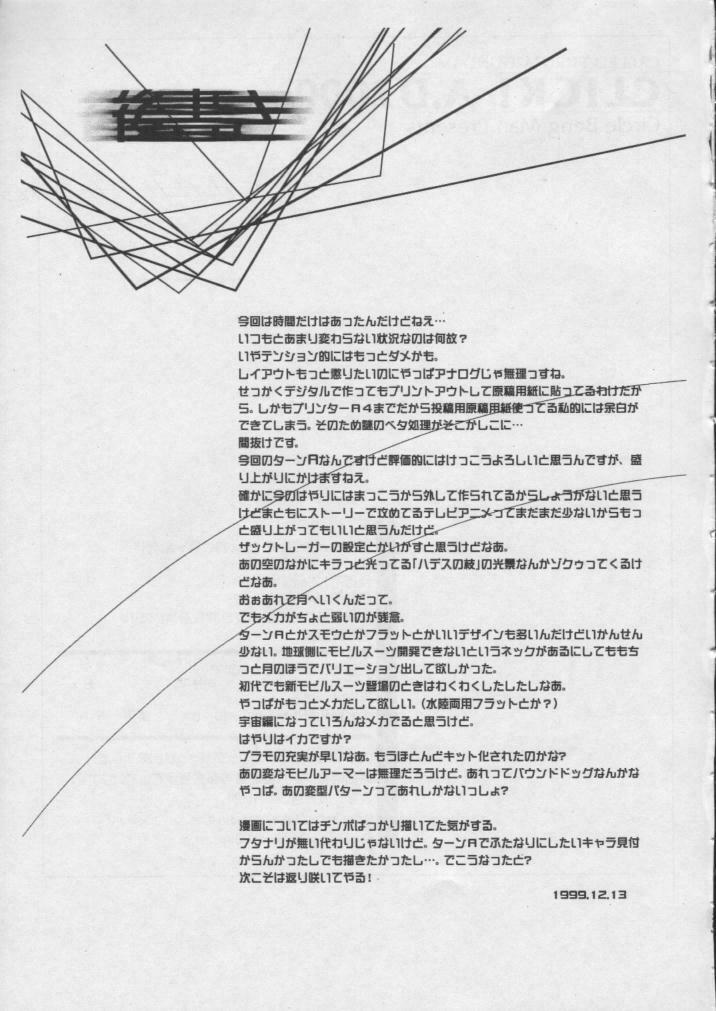 後書き
今回は時間だけはあったんだけどねえ…
いつもとあまり変わらない状況なのは何故？
いやテンション的にはもっとダメかも。
レイアウトもっと懲りたいのにやっぱアナログじゃ無理っすね。
せっかくデジタルで作ってもプリントアウトして原稿用紙に貼ってるわけだか
ら。しかもプリンターA4までだから投稿用原稿用紙使ってる私的には余白が
できてしまう。そのため謎のベタ処理がそこかしこに…
間抜けです。
今回のターンAなんですけど評価的にはけっこうよろしいと思うんですが、盛
り上がりにかけますねえ。
確かに今のはやりにはまっこうから外して作られてるからしょうがないと思う
けどまともにストーリーで攻めてるテレビアニメってまだまだ少ないからもっ
と盛り上がってもいいと思うんだけど。
ザックトレーガーの設定とかいかすと思うけどなあ。
あの空のなかにキラっと光ってる「ハデスの枝」の光景なんかゾクゥってくるけ
どなあ。
おぉあれで月へいくんだって。
でもメカがちょと弱いのが残念。
ターンAとかスモウとかフラットとかいいデザインも多いんだけどいかんせん
少ない。地球側にモビルスーツ開発できないというネックがあるにしてももち
っと月のほうでバリエーション出して欲しかった。
初代でも新モビルスーツ登場のときはわくわくしたしたしなあ。
やっぱがもっとメカだして欲しい。（水陸両用フラットとか？）
宇宙編になっていろんなメカでると思うけど。
はやりはイカですか？
プラモの充実が早いなあ。もうほとんどキット化されたのかな？
あの変なモビルアーマーは無理だろうけど。あれってバウンドドッグなんかな
やっぱ。あの変型パターンってあれしかないっしょ？
漫画についてはチンポばっかり描いてた気がする。
フタナリが無い代わりじゃないけど。ターンAでふたなりにしたいキャラ見付
からんかったしでも描きたかったし…。でこうなったと？
次こそは返り咲いてやる！
1999.12.13